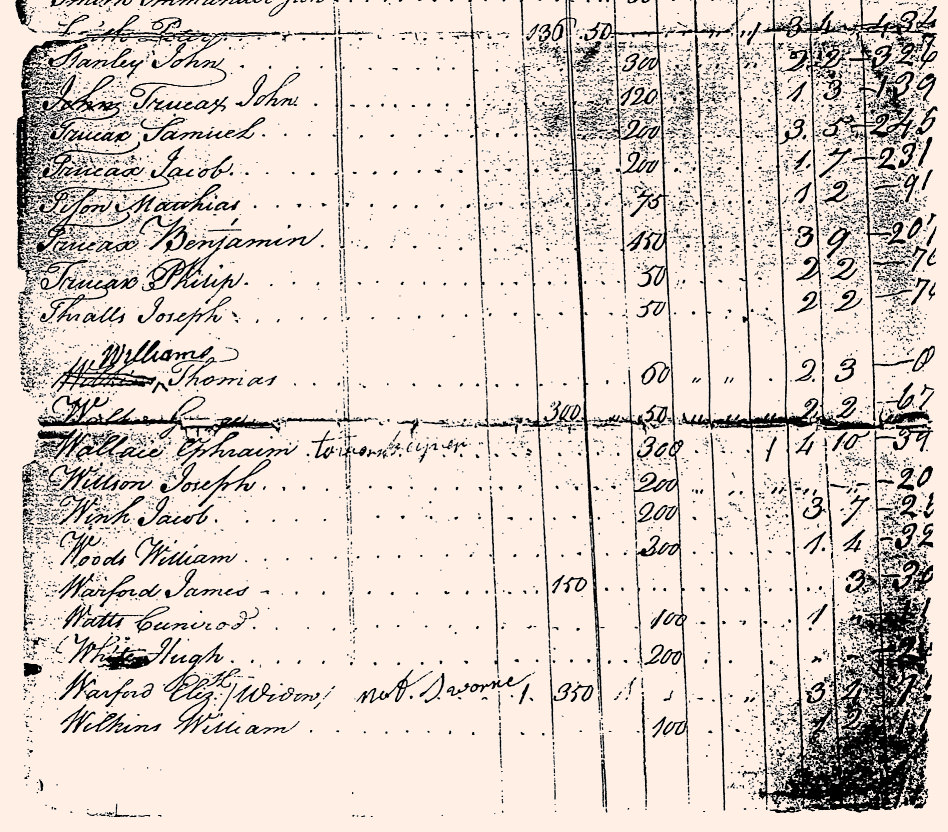 136 50 " 1 3 4 - 434
Stanley John . . . 300 " 2 2 - 326
John Trucax John . . . 120 1 3 - 139
Trucax Samuel . . . 200 3 5 - 245
Trucax Jacob . . . 200 1 7 - 231
Tison Matthias . . . 75 1 2 - 91
Trucax Benjamin . . . 450 3 9 - 207
Trucax Philip . . . 50 2 2 - 76
Thralls Joseph . . . 50 2 2 - 76
Williams
Thomas . . . 60 " " 2 3 - 0
300 " 50 " " " " 2 2 - 67
Wallace Ephraim . . . 300 1 4 10 - 39
Willson Joseph . . . 200 " " " - 20
Wink Jacob . . . 200 3 7 - 22
Woods William . . . 300 1 4 - 32
Warford James - . . . 150 . . . 3 - 36
Watts . . . 100 1 " - 11
White Hugh . . . 200 "
Warford Eliz.th (Widow) not Sworne 1. 350 " 3 4
Wilkins William . . . 100 1 2